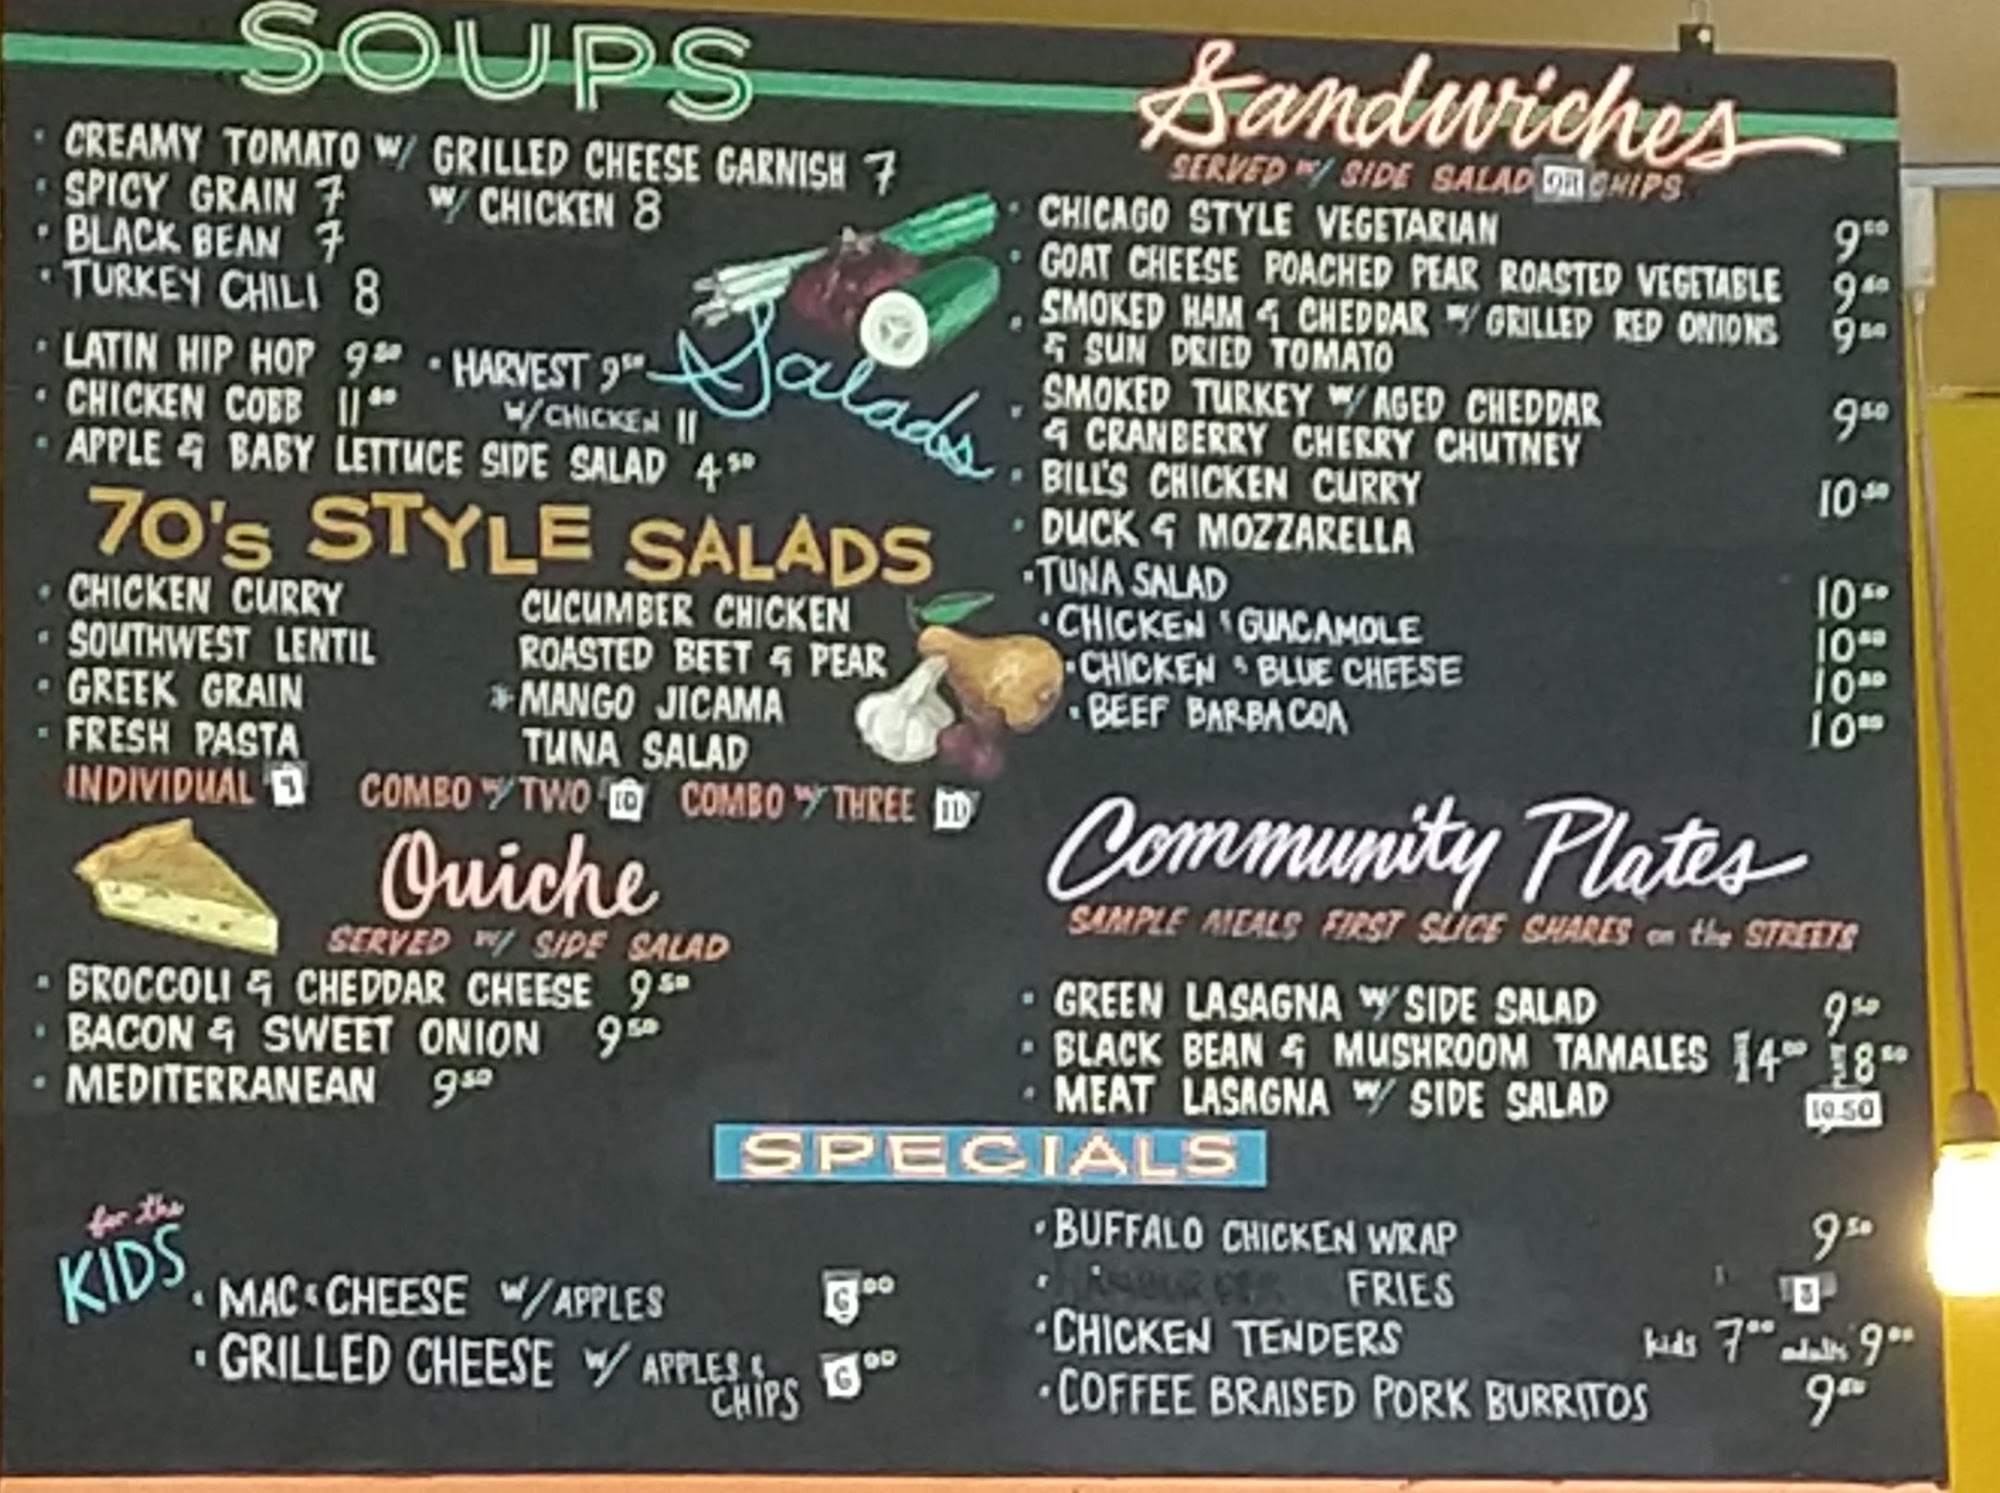 SOUPS
• CREAMY TOMATO W/ GRILLED CHEESE GARNISH 7
• SPICY GRAIN 7 W/ CHICKEN 8
• BLACK BEAN 7
• TURKEY CHILI 8
Salads
• LATIN HIP HOP 9⁵⁰ • HARVEST 9⁵⁰
• CHICKEN COBB 11⁵⁰ W/CHICKEN 11
• APPLE & BABY LETTUCE SIDE SALAD 4⁵⁰
70's STYLE SALADS
• CHICKEN CURRY CUCUMBER CHICKEN
• SOUTHWEST LENTIL ROASTED BEET & PEAR
• GREEK GRAIN * MANGO JICAMA
• FRESH PASTA TUNA SALAD
INDIVIDUAL COMBO W/ TWO 10 COMBO W/ THREE 11
Quiche
SERVED W/ SIDE SALAD
• BROCCOLI & CHEDDAR CHEESE 9⁵⁰
• BACON & SWEET ONION 9⁵⁰
• MEDITERRANEAN 9⁵⁰
Sandwiches
SERVED W/ SIDE SALAD OR CHIPS
• CHICAGO STYLE VEGETARIAN 9⁵⁰
• GOAT CHEESE POACHED PEAR ROASTED VEGETABLE 9⁵⁰
• SMOKED HAM & CHEDDAR W/ GRILLED RED ONIONS 9⁵⁰
& SUN DRIED TOMATO
• SMOKED TURKEY W/ AGED CHEDDAR 9⁵⁰
& CRANBERRY CHERRY CHUTNEY
• BILL'S CHICKEN CURRY 10⁵⁰
• DUCK & MOZZARELLA
• TUNA SALAD 10⁵⁰
• CHICKEN & GUACAMOLE 10⁵⁰
• CHICKEN & BLUE CHEESE 10⁵⁰
• BEEF BARBACOA 10⁵⁰
Community Plates
SAMPLE MEALS FIRST SLICE SHARES on the STREETS
• GREEN LASAGNA W/ SIDE SALAD 9⁵⁰
• BLACK BEAN & MUSHROOM TAMALES 4⁰⁰ 8⁵⁰
• MEAT LASAGNA W/ SIDE SALAD 10.50
SPECIALS
for the
KIDS
• MAC & CHEESE W/APPLES 6⁰⁰
• GRILLED CHEESE W/ APPLES & 6⁰⁰
CHIPS
• BUFFALO CHICKEN WRAP 9⁵⁰
• FRIES 3
• CHICKEN TENDERS kids 7⁰⁰ adults 9⁰⁰
• COFFEE BRAISED PORK BURRITOS 9⁵⁰